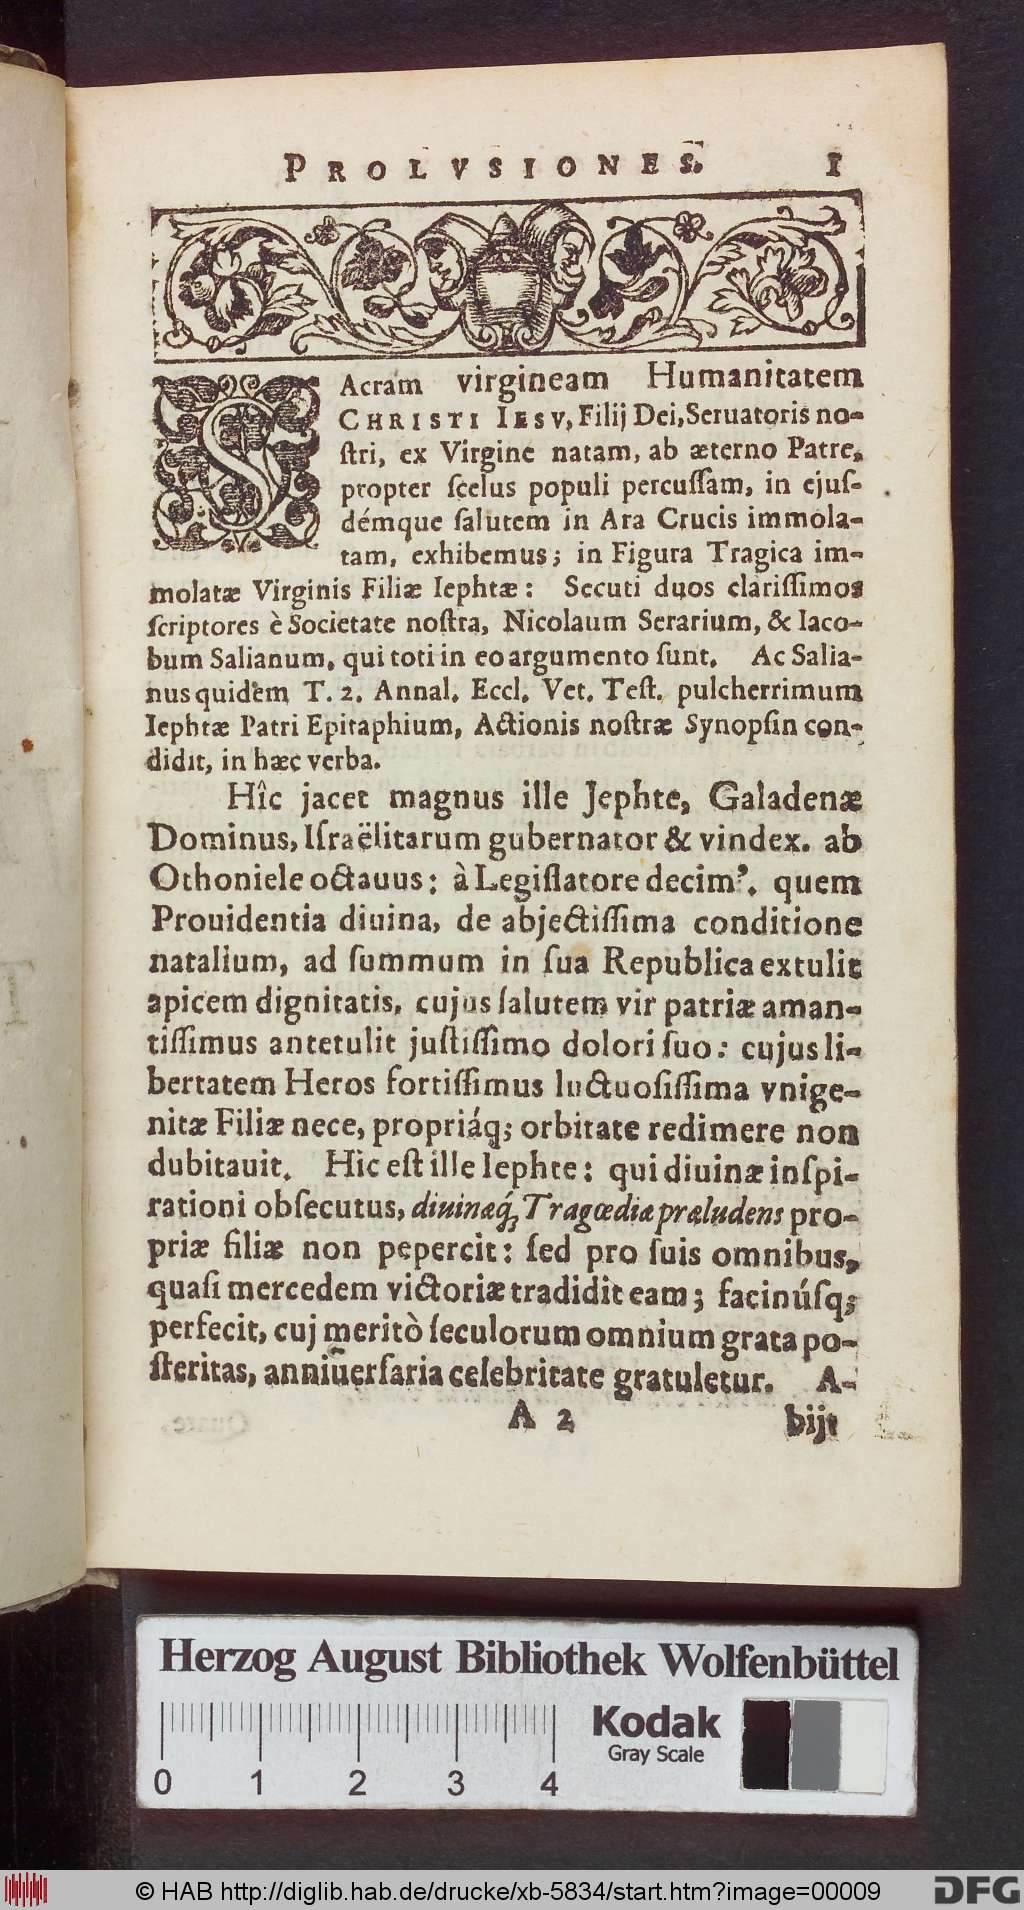 PROLVSIONES. 1
SAcram virgineam Humanitatem
CHRISTI IESV, Filij Dei, Seruatoris no-
ſtri, ex Virgine natam, ab æterno Patre,
propter ſcelus populi percuſſam, in ejuſ-
démque ſalutem in Ara Crucis immola-
tam, exhibemus; in Figura Tragica im-
molatæ Virginis Filiæ Iephtæ: Secuti duos clariſſimos
ſcriptores è Societate noſtra, Nicolaum Serarium, & Iaco-
bum Salianum, qui toti in eo argumento ſunt. Ac Salia-
nus quidem T. 2. Annal. Eccl. Vet. Teſt. pulcherrimum
Iephtæ Patri Epitaphium, Actionis noſtræ Synopſin con-
didit, in hæc verba.
Hîc jacet magnus ille Jephte, Galadenæ
Dominus, Iſraëlitarum gubernator & vindex. ab
Othoniele octauus: à Legiſlatore decim⁹. quem
Prouidentia diuina, de abjectiſſima conditione
natalium, ad ſummum in ſua Republica extulit
apicem dignitatis. cujus ſalutem vir patriæ aman-
tiſſimus antetulit juſtiſſimo dolori ſuo: cujus li-
bertatem Heros fortiſſimus luctuoſiſſima vnige-
nitæ Filiæ nece, propriáq; orbitate redimere non
dubitauit. Hic eſt ille Iephte: qui diuinæ inſpi-
rationi obſecutus, diuinæq́; Tragœdiæ præludens pro-
priæ filiæ non pepercit: ſed pro ſuis omnibus,
quaſi mercedem victoriæ tradidit eam; facinúſq;
perfecit, cuj meritò ſeculorum omnium grata po-
ſteritas, anniuerſaria celebritate gratuletur. A-
A 2 bijt
Herzog August Bibliothek Wolfenbüttel
Kodak
Gray Scale
0 1 2 3 4
© HAB http://diglib.hab.de/drucke/xb-5834/start.htm?image=00009
DFG